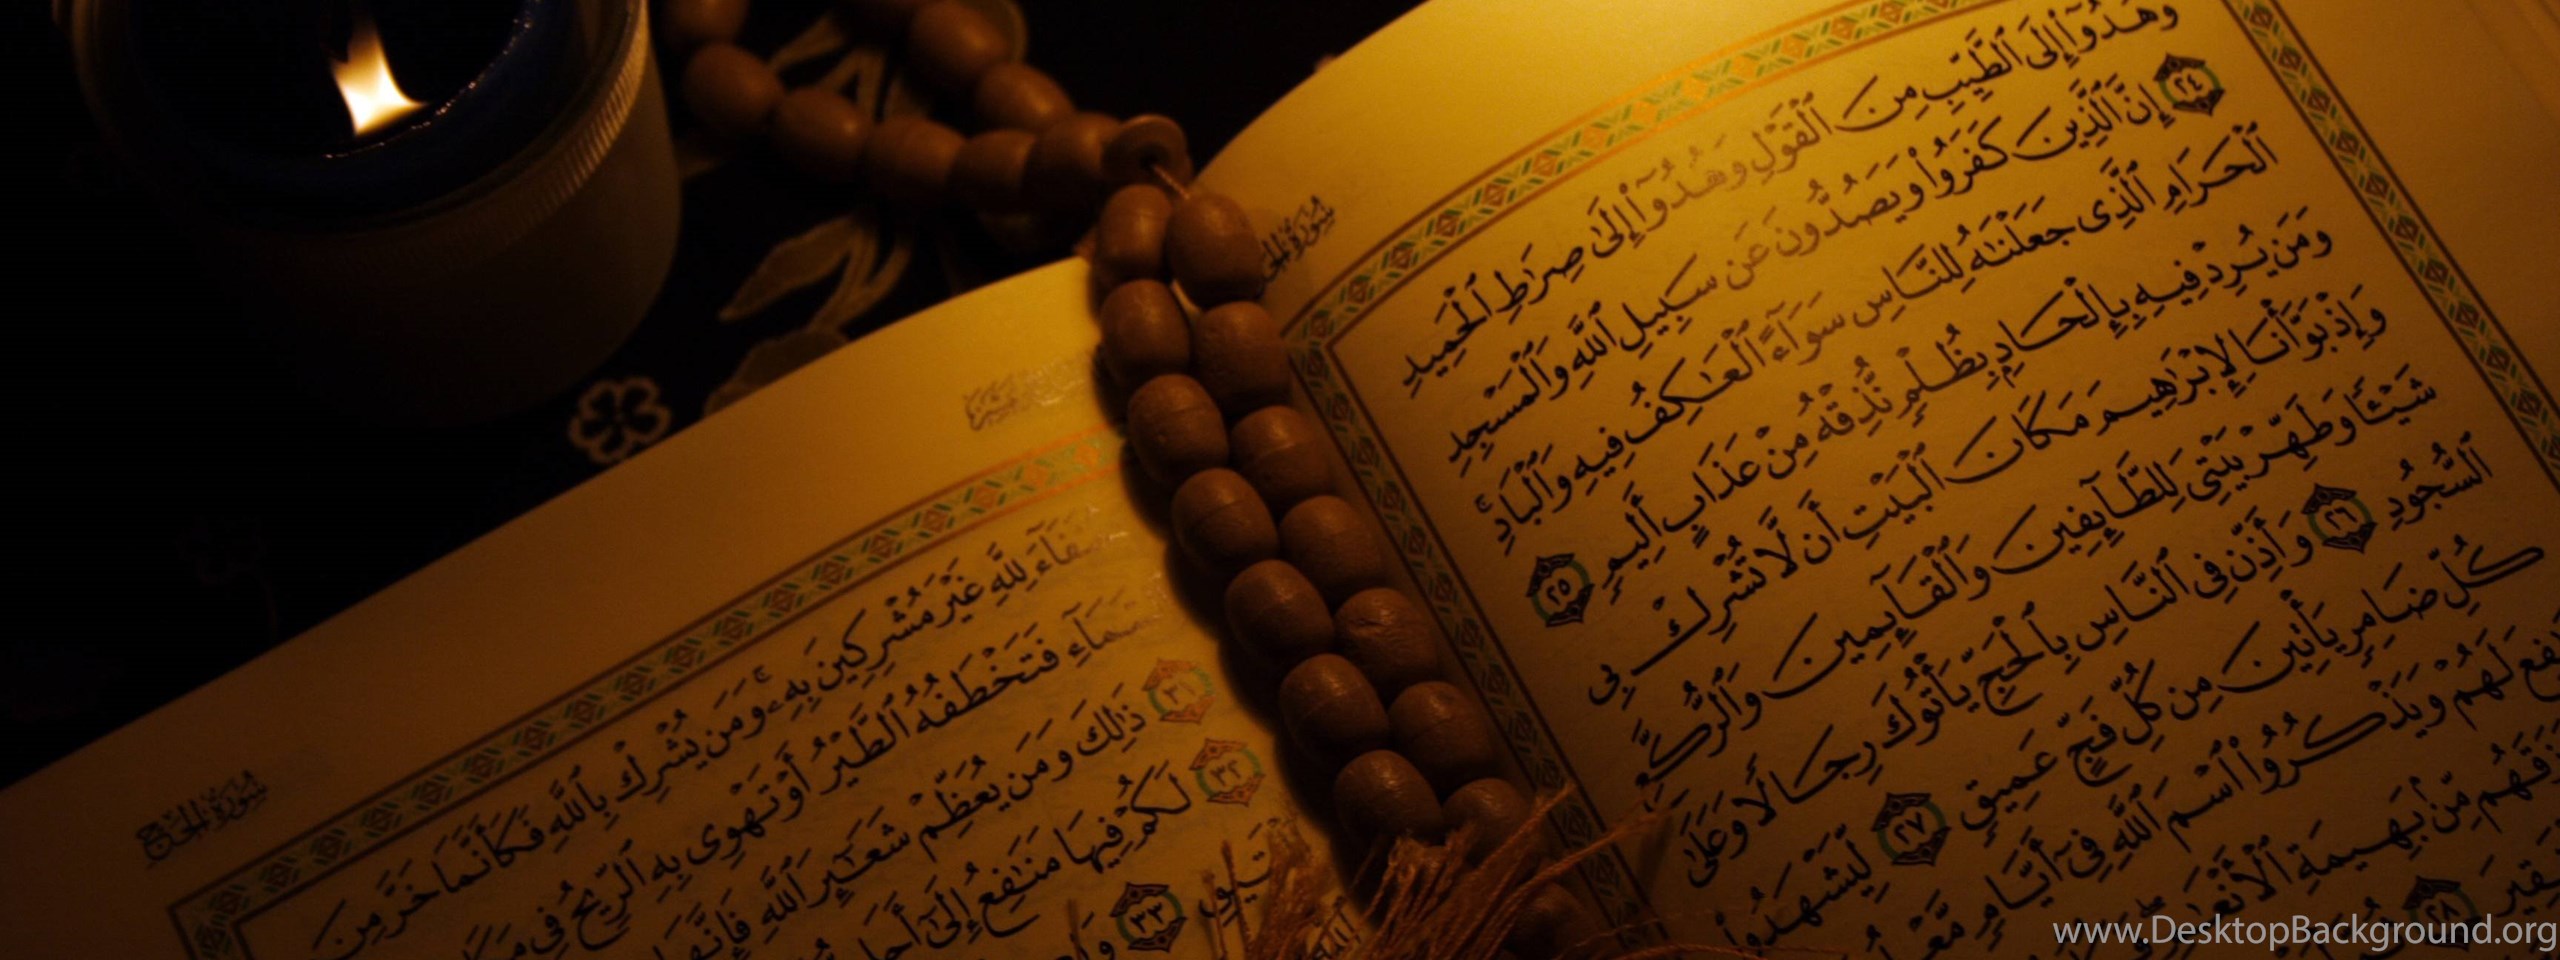 سُورَةُ الحَجِّ
وَهُدُوٓا۟ إِلَى ٱلطَّيِّبِ مِنَ ٱلْقَوْلِ وَهُدُوٓا۟ إِلَىٰ صِرَٰطِ ٱلْحَمِيدِ
٢٤ إِنَّ ٱلَّذِينَ كَفَرُوا۟ وَيَصُدُّونَ عَن سَبِيلِ ٱللَّهِ وَٱلْمَسْجِدِ
ٱلْحَرَامِ ٱلَّذِى جَعَلْنَٰهُ لِلنَّاسِ سَوَآءً ٱلْعَٰكِفُ فِيهِ وَٱلْبَادِ ۚ
وَمَن يُرِدْ فِيهِ بِإِلْحَادٍۭ بِظُلْمٍ نُّذِقْهُ مِنْ عَذَابٍ أَلِيمٍ ٢٥
وَإِذْ بَوَّأْنَا لِإِبْرَٰهِيمَ مَكَانَ ٱلْبَيْتِ أَن لَّا تُشْرِكْ بِى
شَيْـًٔا وَطَهِّرْ بَيْتِىَ لِلطَّآئِفِينَ وَٱلْقَآئِمِينَ وَٱلرُّكَّعِ
ٱلسُّجُودِ ٢٦ وَأَذِّن فِى ٱلنَّاسِ بِٱلْحَجِّ يَأْتُوكَ رِجَالًا وَعَلَىٰ
كُلِّ ضَامِرٍ يَأْتِينَ مِن كُلِّ فَجٍّ عَمِيقٍ ٢٧ لِّيَشْهَدُوا۟
لَهُمْ وَيَذْكُرُوا۟ ٱسْمَ ٱللَّهِ فِىٓ أَيَّامٍ
مِّنۢ بَهِيمَةِ ٱلْأَنْعَٰمِ
٢٨
سُورَةُ الحَجِّ
لِلَّهِ غَيْرَ مُشْرِكِينَ بِهِۦ ۚ وَمَن يُشْرِكْ بِٱللَّهِ فَكَأَنَّمَا خَرَّ مِنَ
فَتَخْطَفُهُ ٱلطَّيْرُ أَوْ تَهْوِى بِهِ ٱلرِّيحُ فِى
٣١ ذَٰلِكَ وَمَن يُعَظِّمْ شَعَٰٓئِرَ ٱللَّهِ فَإِنَّهَا
٣٢ لَكُمْ فِيهَا مَنَٰفِعُ إِلَىٰٓ أَجَلٍ
٣٣
www.DesktopBackground.org